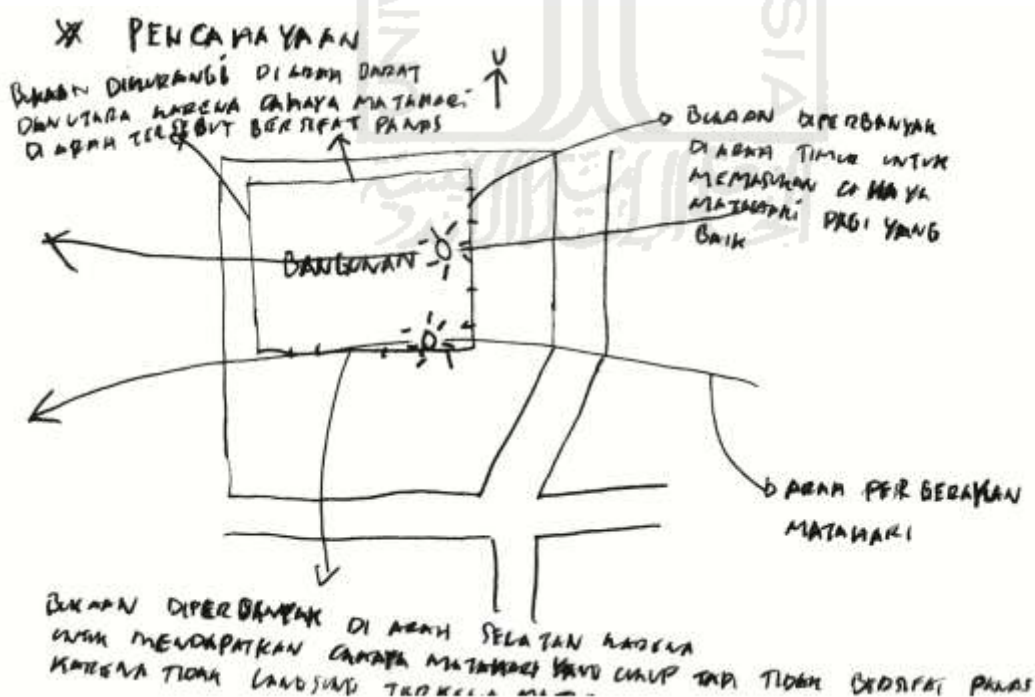 PENCAHAYAAN
BUKAAN DIKURANGI DI ARAH BARAT
DAN UTARA KARENA CAHAYA MATAHARI
DI ARAH TERSEBUT BERSIFAT PANAS
U
BUKAAN DIPERBANYAK
DI ARAH TIMUR UNTUK
MEMASUKAN CAHAYA
MATAHARI PAGI YANG
BAIK
BANGUNAN
ARAH PERGERAKAN
MATAHARI
BUKAAN DIPERBANYAK DI ARAH SELATAN KARENA
UNTUK MENDAPATKAN CAHAYA MATAHARI YANG CUKUP TAPI TIDAK BERSIFAT PANAS
KARENA TIDAK LANGSUNG TERKENA